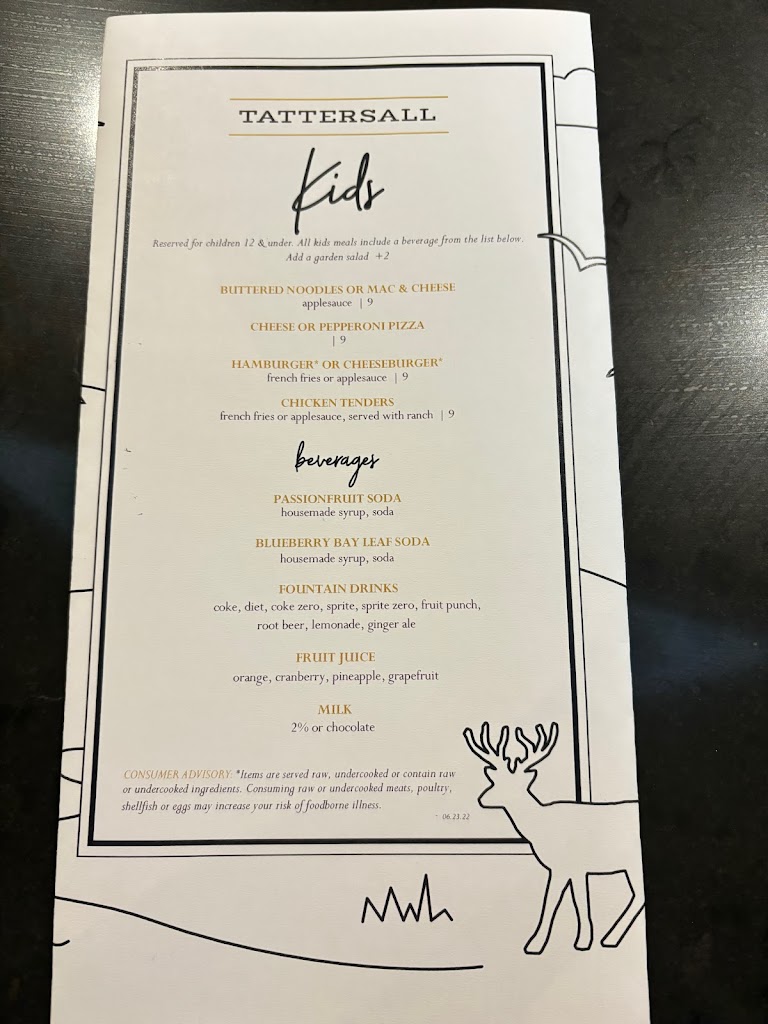 TATTERSALL
Kids
Reserved for children 12 & under. All kids meals include a beverage from the list below.
Add a garden salad +2
BUTTERED NOODLES OR MAC & CHEESE
applesauce | 9
CHEESE OR PEPPERONI PIZZA
| 9
HAMBURGER* OR CHEESEBURGER*
french fries or applesauce | 9
CHICKEN TENDERS
french fries or applesauce, served with ranch | 9
beverages
PASSIONFRUIT SODA
housemade syrup, soda
BLUEBERRY BAY LEAF SODA
housemade syrup, soda
FOUNTAIN DRINKS
coke, diet, coke zero, sprite, sprite zero, fruit punch,
root beer, lemonade, ginger ale
FRUIT JUICE
orange, cranberry, pineapple, grapefruit
MILK
2% or chocolate
CONSUMER ADVISORY: *Items are served raw, undercooked or contain raw
or undercooked ingredients. Consuming raw or undercooked meats, poultry,
shellfish or eggs may increase your risk of foodborne illness.
~ 06.23.22